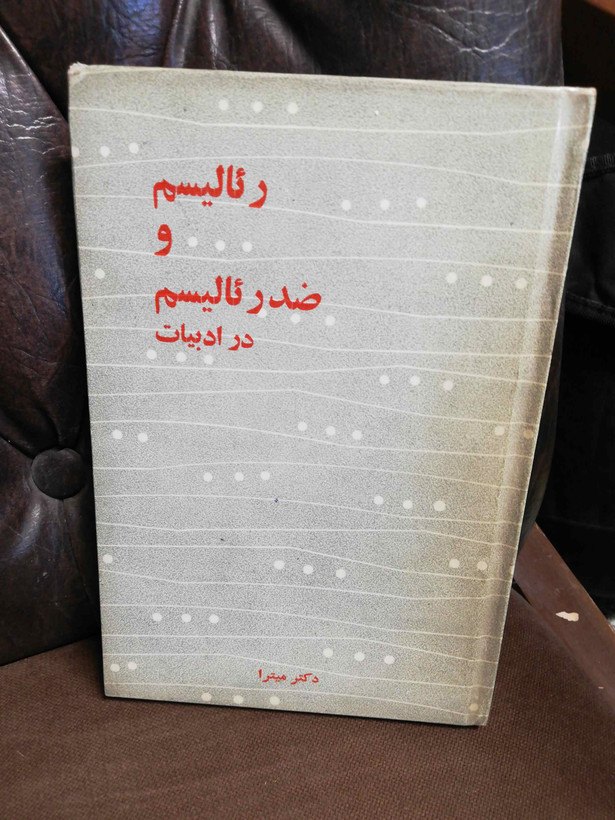 رئالیسم
و
ضد رئالیسم
در ادبیات
دکتر میترا